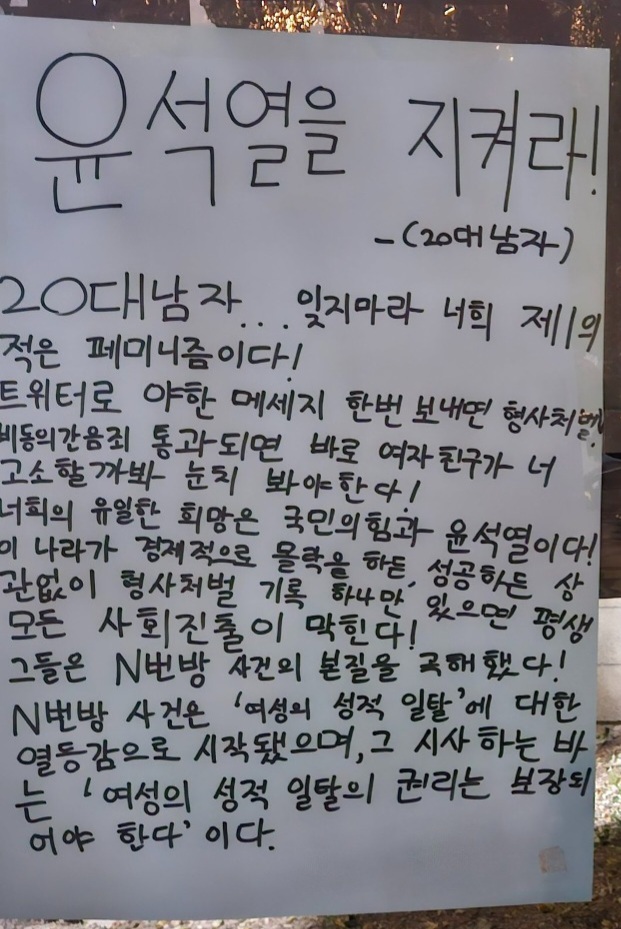 윤석열을 지켜라!
-(20대남자)
20대남자... 잊지마라 너희 제1의
적은 페미니즘이다!
트위터로 야한 메세지 한번 보내면 형사처벌!
비동의간음죄 통과되면 바로 여자친구가 너
고소할까봐 눈치 봐야한다!
너희의 유일한 희망은 국민의힘과 윤석열이다!
이 나라가 경제적으로 몰락을 하든, 성공하든 상
관없이 형사처벌 기록 하나만 있으면 평생
모든 사회진출이 막힌다!
그들은 N번방 사건의 본질을 곡해했다!
N번방 사건은 '여성의 성적 일탈'에 대한
열등감으로 시작됐으며, 그 시사하는 바
는 '여성의 성적 일탈의 권리는 보장되
어야 한다'이다.